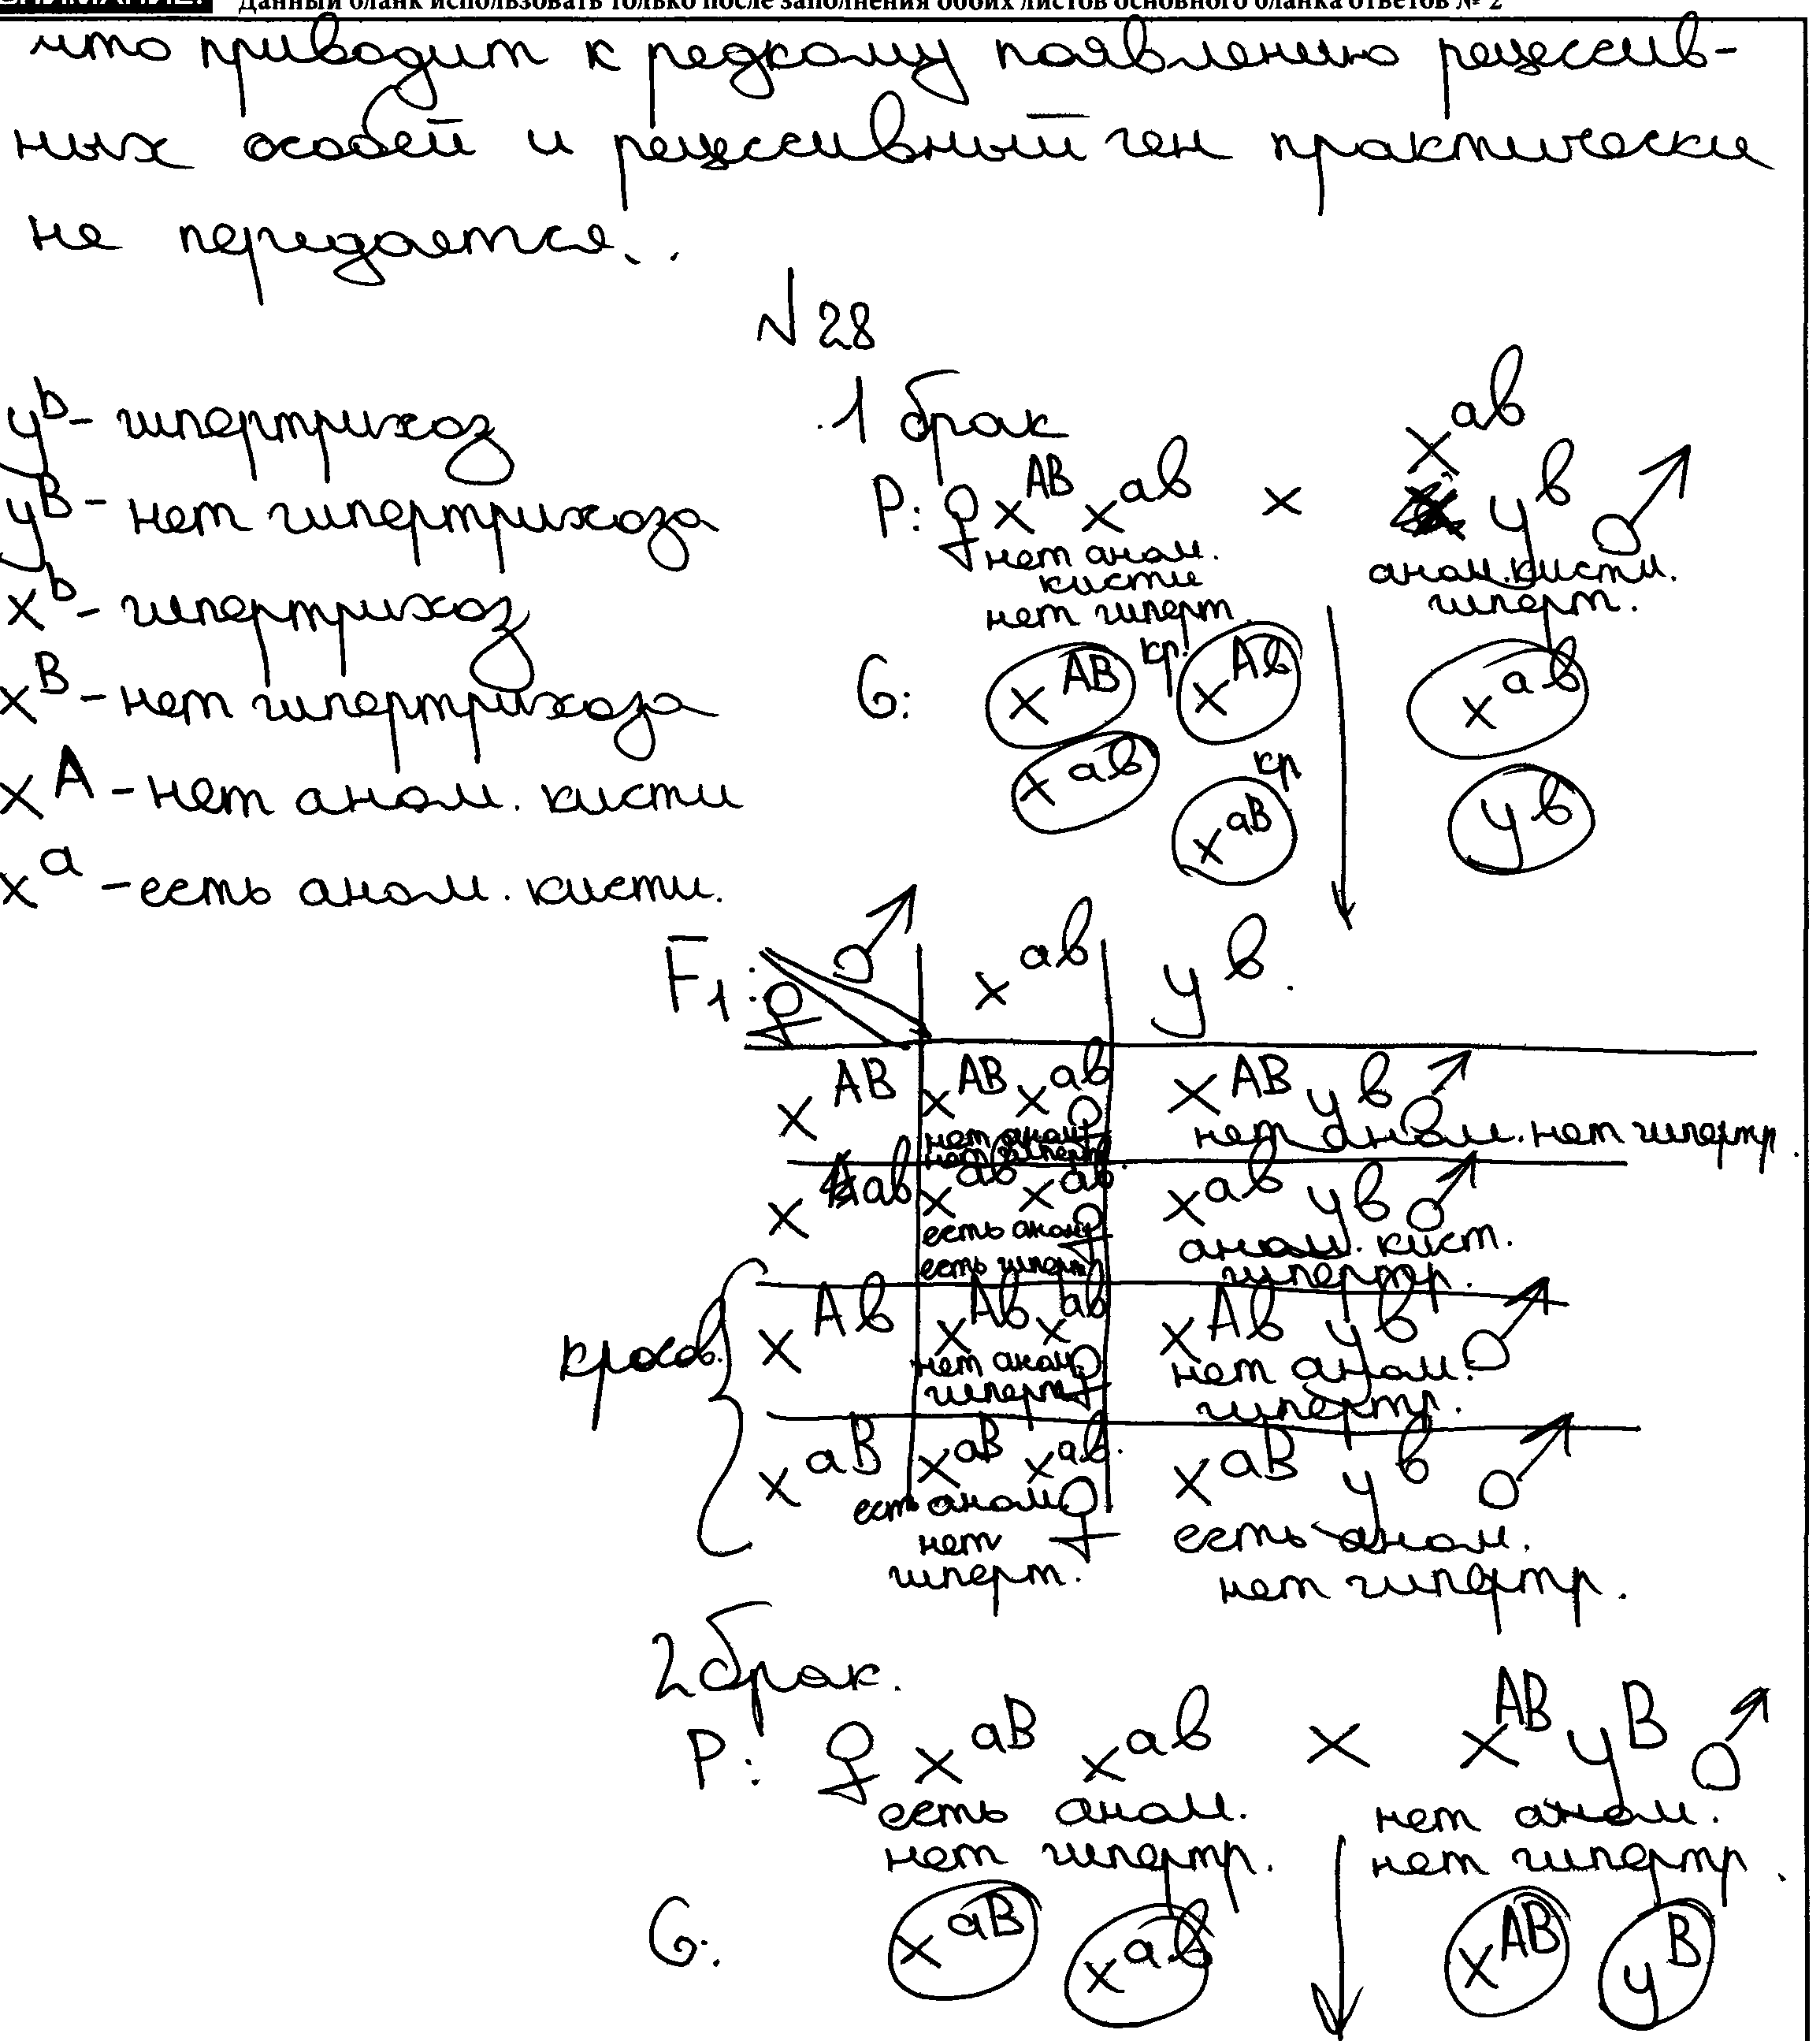 Данный бланк использовать только после заполнения обоих листов основного бланка ответов № 2
что приводит к редкому появлению рецессив-
ных особей и рецессивный ген практически
не передается..
№28
y^b - гипертрихоз
y^B - нет гипертрихоза
x^b - гипертрихоз
x^B - нет гипертрихоза
x^A - нет аном. кисти
x^a - есть аном. кисти.
1 брак
P: ♀ x^AB x^ab × x^ab y^b ♂
нет аном. кисти нет гиперт.
аном. кисти. гиперт.
G: x^AB кр. x^Ab x^ab
x^ab кр x^aB y^b
F1: ♀ ♂ x^ab y^b.
x^AB x^AB x^ab ♀ x^AB y^b ♂
нет аном. нет гиперт. нет аном. нет гипертр.
x^ab x^ab x^ab ♀ x^ab y^b ♂
есть аном. есть гиперт. аном. кист. гипертр.
кроссов.
x^Ab x^Ab x^ab ♀ x^Ab y^b ♂
нет аном. гиперт. нет аном. гипертр.
x^aB x^aB x^ab. ♀ x^aB y^b ♂
есть аном. нет гиперт. есть аном. нет гипертр.
2 брак.
P: ♀ x^aB x^ab × x^AB y^B ♂
есть аном. нет аном.
нет гипертр. нет гипертр.
G: x^aB x^ab x^AB y^B